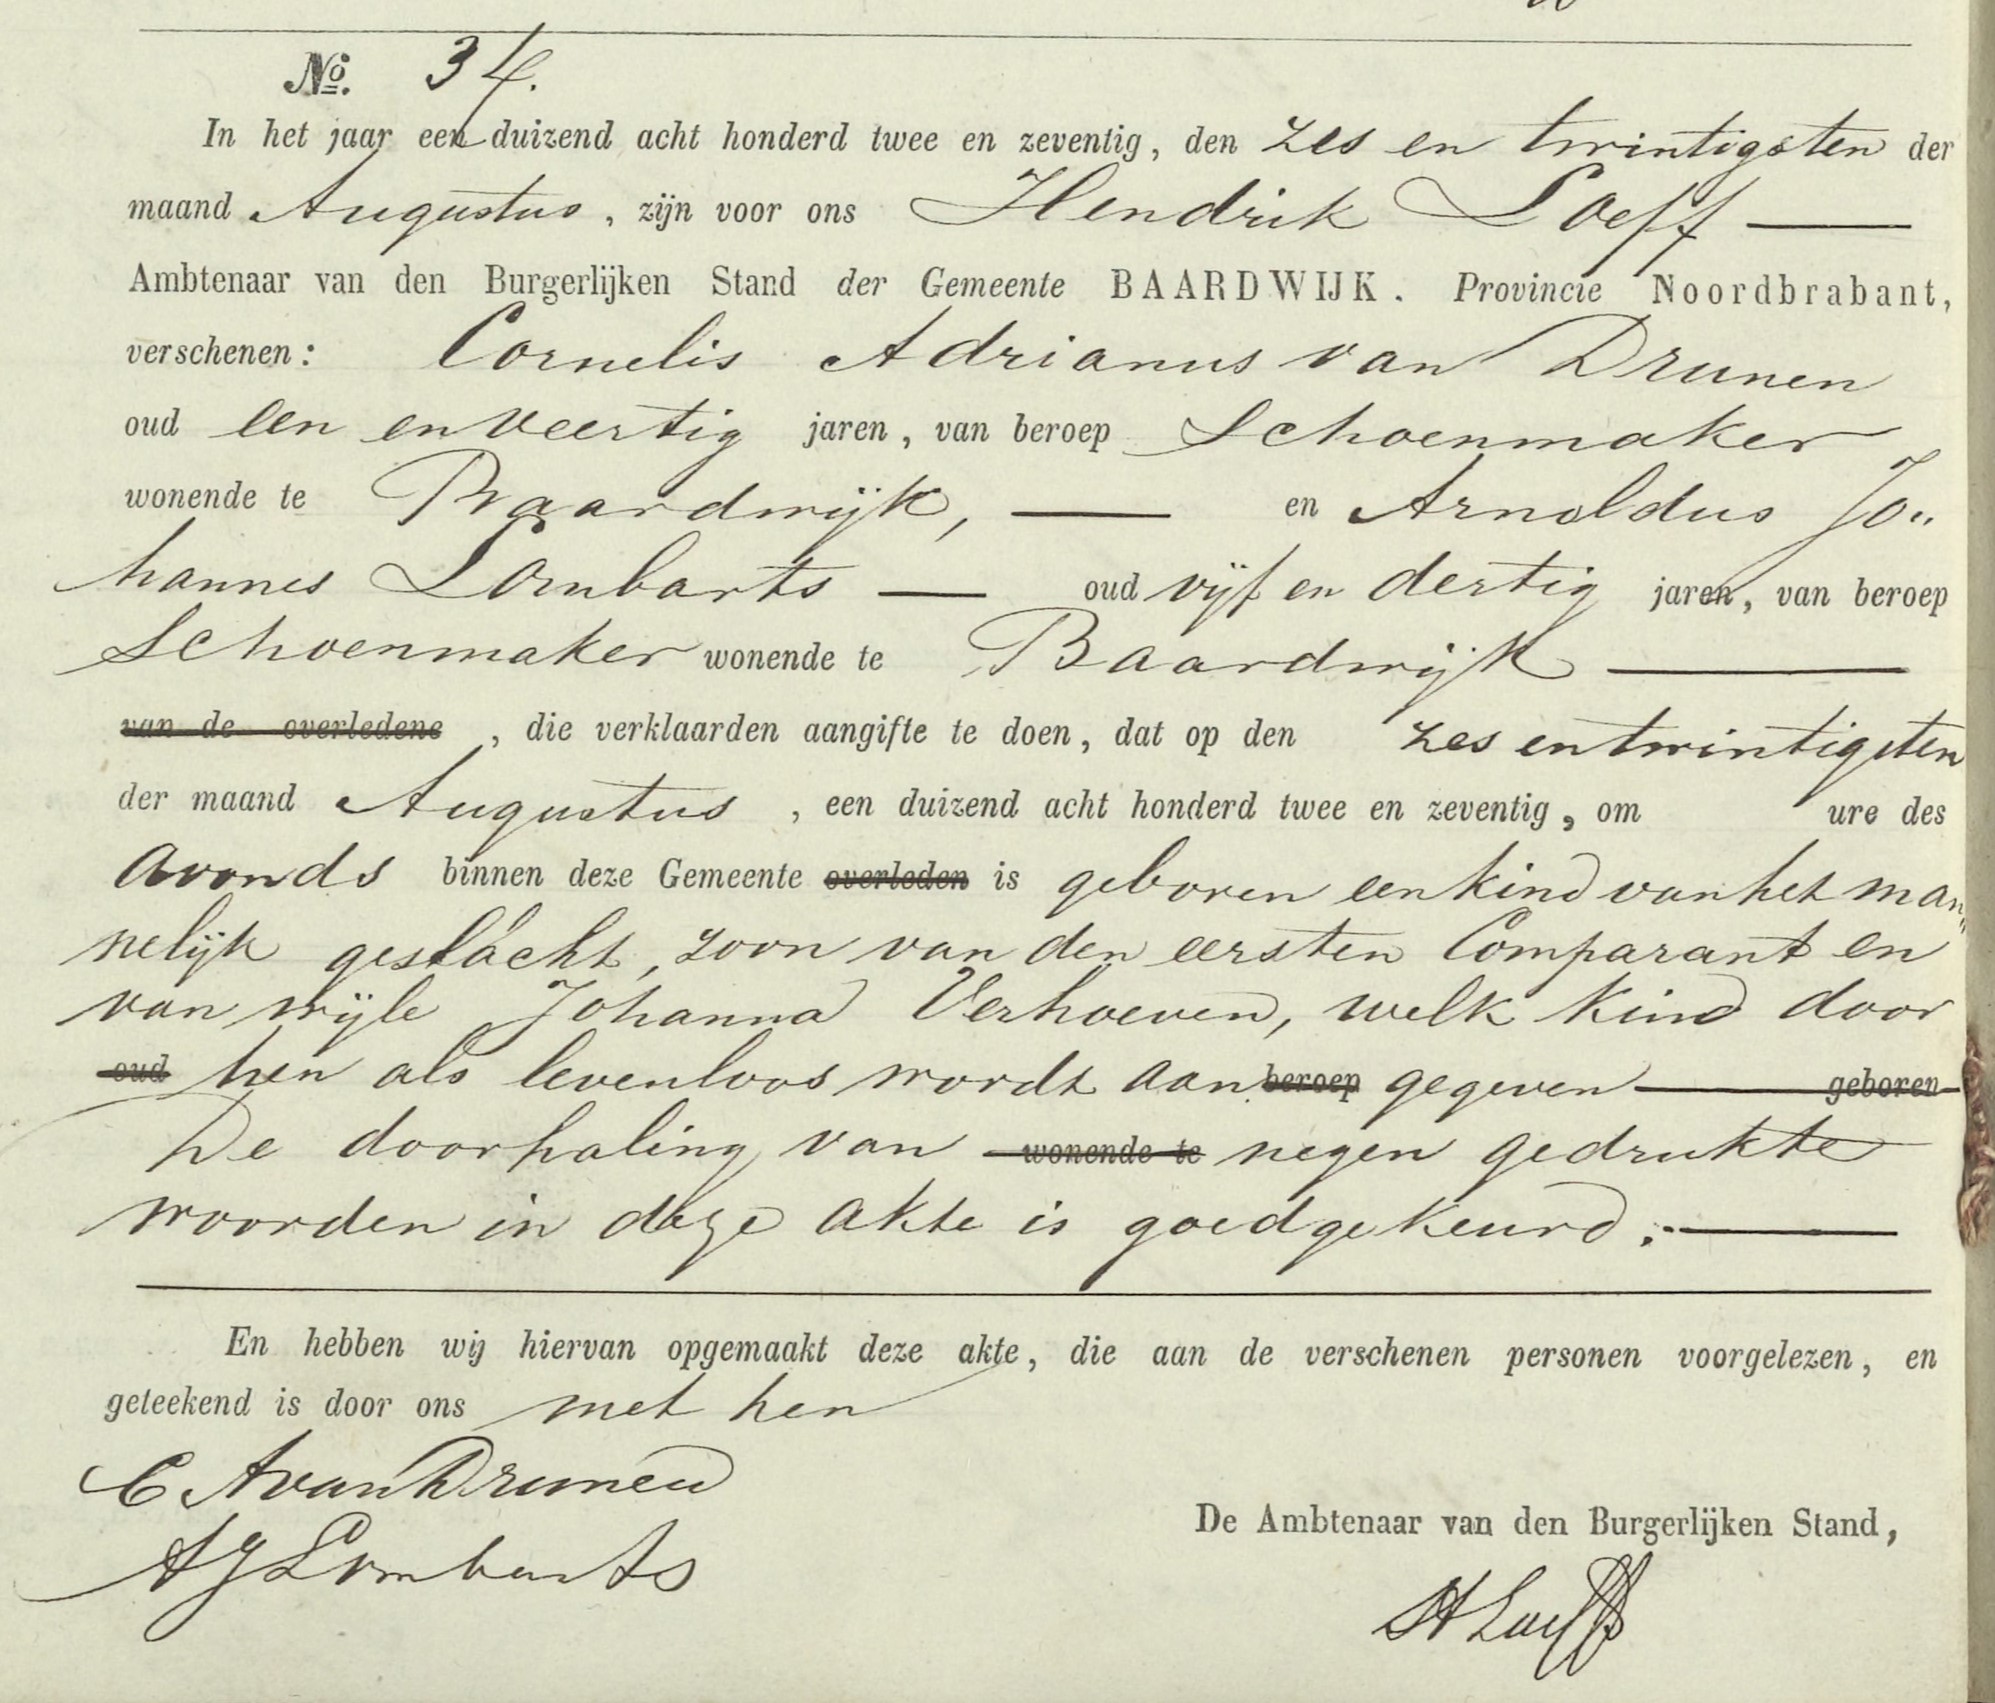 No. 34.
In het jaar een duizend acht honderd twee en zeventig, den zes en twintigsten der
maand Augustus, zijn voor ons Hendrik Loeff
Ambtenaar van den Burgerlijken Stand der Gemeente BAARDWIJK. Provincie Noordbrabant,
verschenen: Cornelis Adrianus van Drunen
oud een en veertig jaren, van beroep Schoenmaker
wonende te Baardwijk, en Arnoldus Jo„
hannes Lombarts oud vijf en dertig jaren, van beroep
Schoenmaker wonende te Baardwijk
van de overledene, die verklaarden aangifte te doen, dat op den zes en twintigsten
der maand Augustus, een duizend acht honderd twee en zeventig, om ure des
avonds binnen deze Gemeente overleden is geboren een kind van het man„
nelijk geslacht, zoon van den eersten Comparant en
van wijle Johanna Verhoeven, welk kind door
oud hen als levenloos wordt aan beroep gegeven geboren
De doorhaling van wonende te negen gedrukte
woorden in deze akte is goedgekeurd.
En hebben wij hiervan opgemaakt deze akte, die aan de verschenen personen voorgelezen, en
geteekend is door ons met hen
C A van Drunen
A J Lombarts
De Ambtenaar van den Burgerlijken Stand,
H Loeff